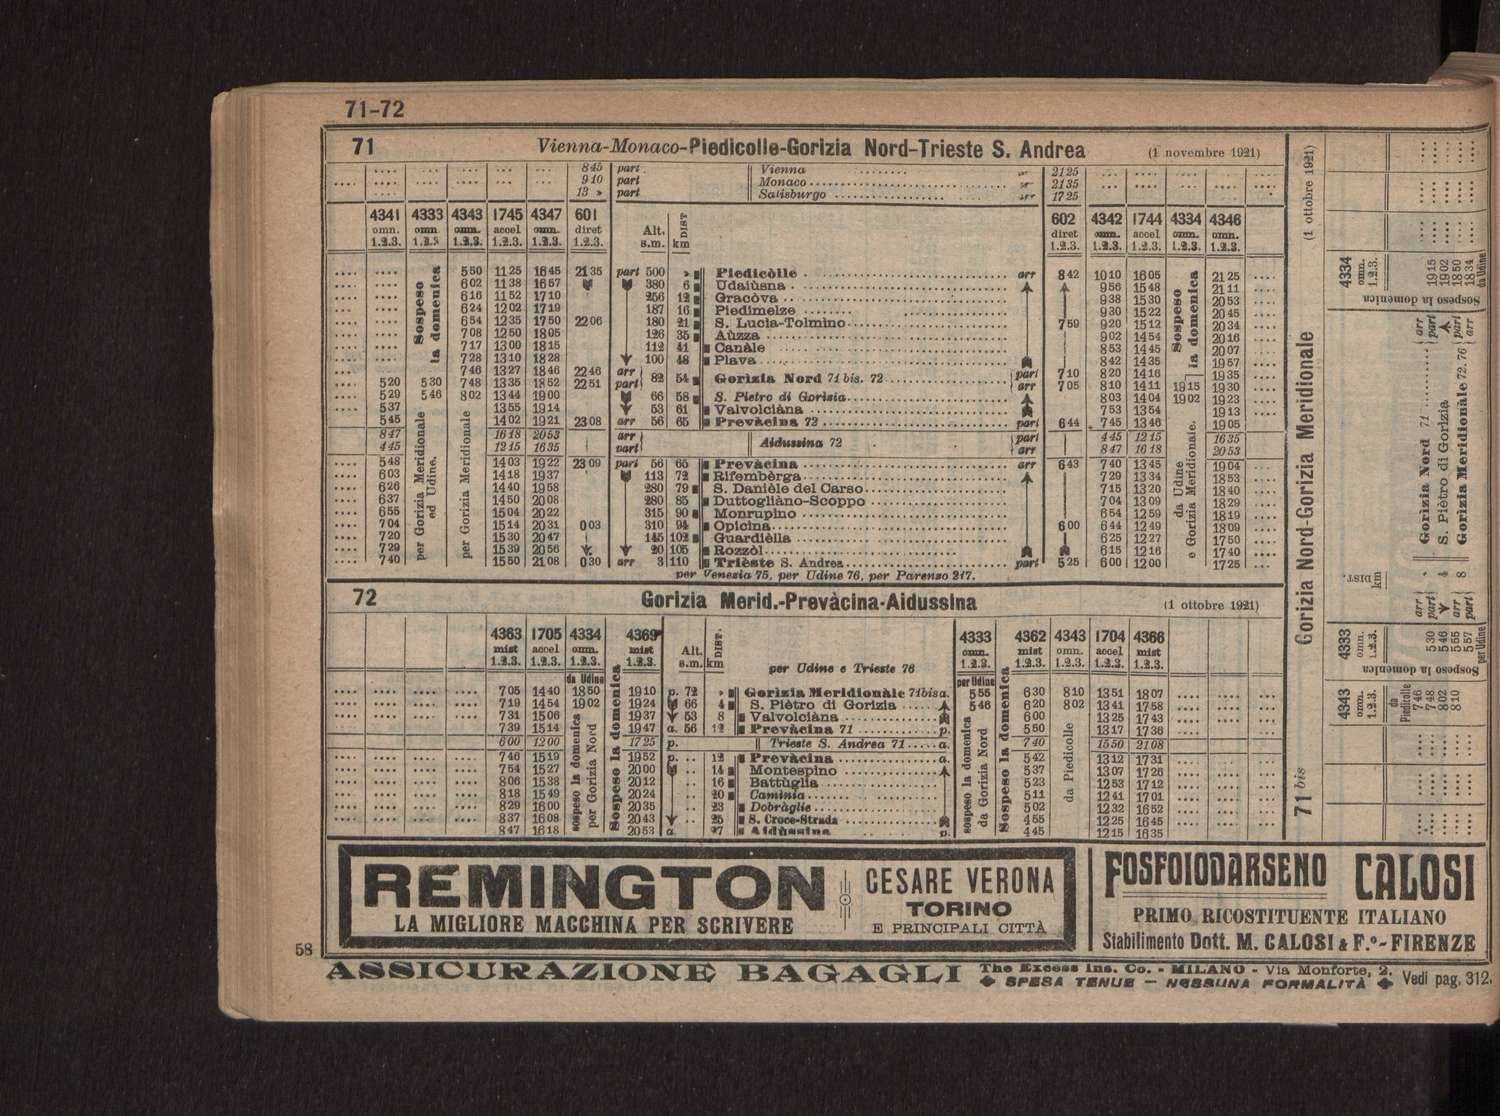 71-72
71 Vienna-Monaco-Piedicolle-Gorizia Nord-Trieste S. Andrea (1 novembre 1921)
.... .... .... .... .... 845 part Vienna ........ arr 2125 ... ... ... ...
.... .... .... .... .... 910 part Monaco ........ arr 2135 .... .... .... ....
... ... ... ... ... 13 » part Salisburgo ........ arr 1725 ... ... ... ...
4341 4333 4343 1745 4347 601 602 4342 1744 4334 4346
omn. omn. omn. accel omn. diret Alt. DIST diret omn. accel omn. omn.
1.2.3. 1.2.3 1.2.3. 1.2.3. 1.2.3. 1.2.3. s.m. km 1.2.3. 1.2.3. 1.2.3. 1.2.3. 1.2.3.
Sospeso la domenica
Sospeso la domenica
.... .... 550 1125 1645 2135 part 500 » Piedicòlle arr 842 1010 1605 2125 ....
.... .... 602 1138 1657 380 6 Udaiùsna 956 1548 2111 ....
.... .... 616 1152 1710 256 12 Gracòva 938 1530 2053 ....
.... .... 624 1202 1719 187 16 Piedimelze 930 1522 2045 ....
.... .... 654 1235 1750 2206 180 21 S. Lucia-Tolmino 759 920 1512 2034 ....
.... .... 708 1250 1805 126 35 Aùzza 902 1454 2016 ....
.... .... 717 1300 1815 112 41 Canàle 853 1445 2007 ....
.... .... 728 1310 1828 100 48 Plava 842 1435 1957 ....
.... 746 1327 1846 2246 arr 82 54 Gorizia Nord 71 bis. 72 part 710 820 1416 1935 ....
.... 520 530 748 1335 1852 2251 part arr 705 810 1411 1915 1930 ....
.... 529 546 802 1344 1900 66 58 S. Pietro di Gorizia 803 1404 1902 1923 ....
.... 537 1355 1914 53 61 Valvolciàna 753 1354 1913 ....
545 1402 1921 2308 arr 56 65 Prevàcina 72 part 644 745 1346 1905 ....
847 1618 2053 arr Aidussina 72 part 445 1215 1635
445 1215 1635 part arr 847 1618 2053
per Gorizia Meridionale ed Udine.
per Gorizia Meridionale
da Udine e Gorizia Meridionale.
.... 548 1403 1922 2309 part 56 65 Prevàcina arr 643 740 1345 1904 ....
.... 603 1418 1937 113 72 Rifembèrga 729 1334 1853 ....
.... 626 1440 1958 280 79 S. Danièle del Carso 715 1320 1840 ....
.... 637 1450 2008 280 85 Duttogliàno-Scoppo 704 1309 1829 ....
.... 655 1504 2022 315 90 Monrupino 654 1259 1819 ....
.... 704 1514 2031 003 310 94 Opicina 600 644 1249 1809 ....
.... 720 1530 2047 145 102 Guardièlla 625 1227 1750 ....
.... 729 1539 2056 20 105 Rozzòl 615 1216 1740 ....
.... 740 1550 2108 030 arr 3 110 Trièste S. Andrea part 525 600 1200 1725 ....
per Venezia 75, per Udine 76, per Parenzo 217.
72 Gorizia Merid.-Prevàcina-Aidussina (1 ottobre 1921)
4363 1705 4334 4369 4333 4362 4343 1704 4366
mist accel omn. mist Alt. DIST. omn. mist omn. accel mist
1.2.3. 1.2.3. 1.2.3. 1.2.3. s.m. km per Udine e Trieste 76 1.2.3. 1.2.3. 1.2.3. 1.2.3. 1.2.3.
da Udine per Udine
.... .... .... .... 705 1440 1850 1910 p. 72 » Gorizia Meridionàle 71bis a. 555 630 810 1351 1807 .... .... ....
.... .... .... .... 719 1454 1902 1924 66 4 S. Piètro di Gorizia 546 620 802 1341 1758 .... .... ....
.... .... .... .... 731 1506 1937 53 8 Valvolciàna 600 1325 1743 .... .... ....
.... .... .... .... 739 1514 1947 a. 56 12 Prevàcina 71 p. 550 1317 1736 .... .... ....
600 1200 1725 p. Trieste S. Andrea 71 a. 740 1550 2108
.... .... .... .... 746 1519 1952 p. .. 12 Prevàcina a. 542 1312 1731 .... .... ....
.... .... .... .... 754 1527 2000 .. 14 Montespino 537 1307 1726 .... .... ....
.... .... .... .... 806 1538 2012 .. 16 Battùglia 523 1253 1712 .... .... ....
.... .... .... .... 818 1549 2024 .. 20 Caminia 511 1241 1701 .... .... ....
.... .... .... .... 829 1600 2035 .. 23 Dobràglie 502 1232 1652 .... .... ....
.... .... .... .... 837 1608 2043 .. 25 S. Croce-Strada 455 1225 1645 .... .... ....
.... .... .... .... 847 1618 2053 a. 27 Aidùssina p. 445 1215 1635 .... .... ....
sospeso la domenica per Gorizia Nord
Sospeso la domenica
sospeso la domenica da Gorizia Nord
Sospeso la domenica
da Piedicolle
71 bis Gorizia Nord-Gorizia Meridionale (1 ottobre 1921)
4343 4333 DIST. 4334
omn. omn. km omn.
1.2.3. 1.2.3. 1.2.3.
Sospeso la domenica Sospeso la domenica
da Piedicolle
746 arr » Gorizia Nord 71 arr 1915
748 530 part part
802 546 4 S. Piètro di Gorizia 1902
810 555 arr 8 Gorizia Meridionàle 72. 76 part 1850
557 part arr 1834
per Udine da Udine
REMINGTON
LA MIGLIORE MACCHINA PER SCRIVERE
CESARE VERONA
TORINO
E PRINCIPALI CITTÀ
FOSFOIODARSENO CALOSI
PRIMO RICOSTITUENTE ITALIANO
Stabilimento Dott. M. CALOSI & F.º - FIRENZE
58
ASSICURAZIONE BAGAGLI The Excess Ins. Co. - MILANO - Via Monforte, 2.
SPESA TENUE — NESSUNA FORMALITÀ Vedi pag. 312.